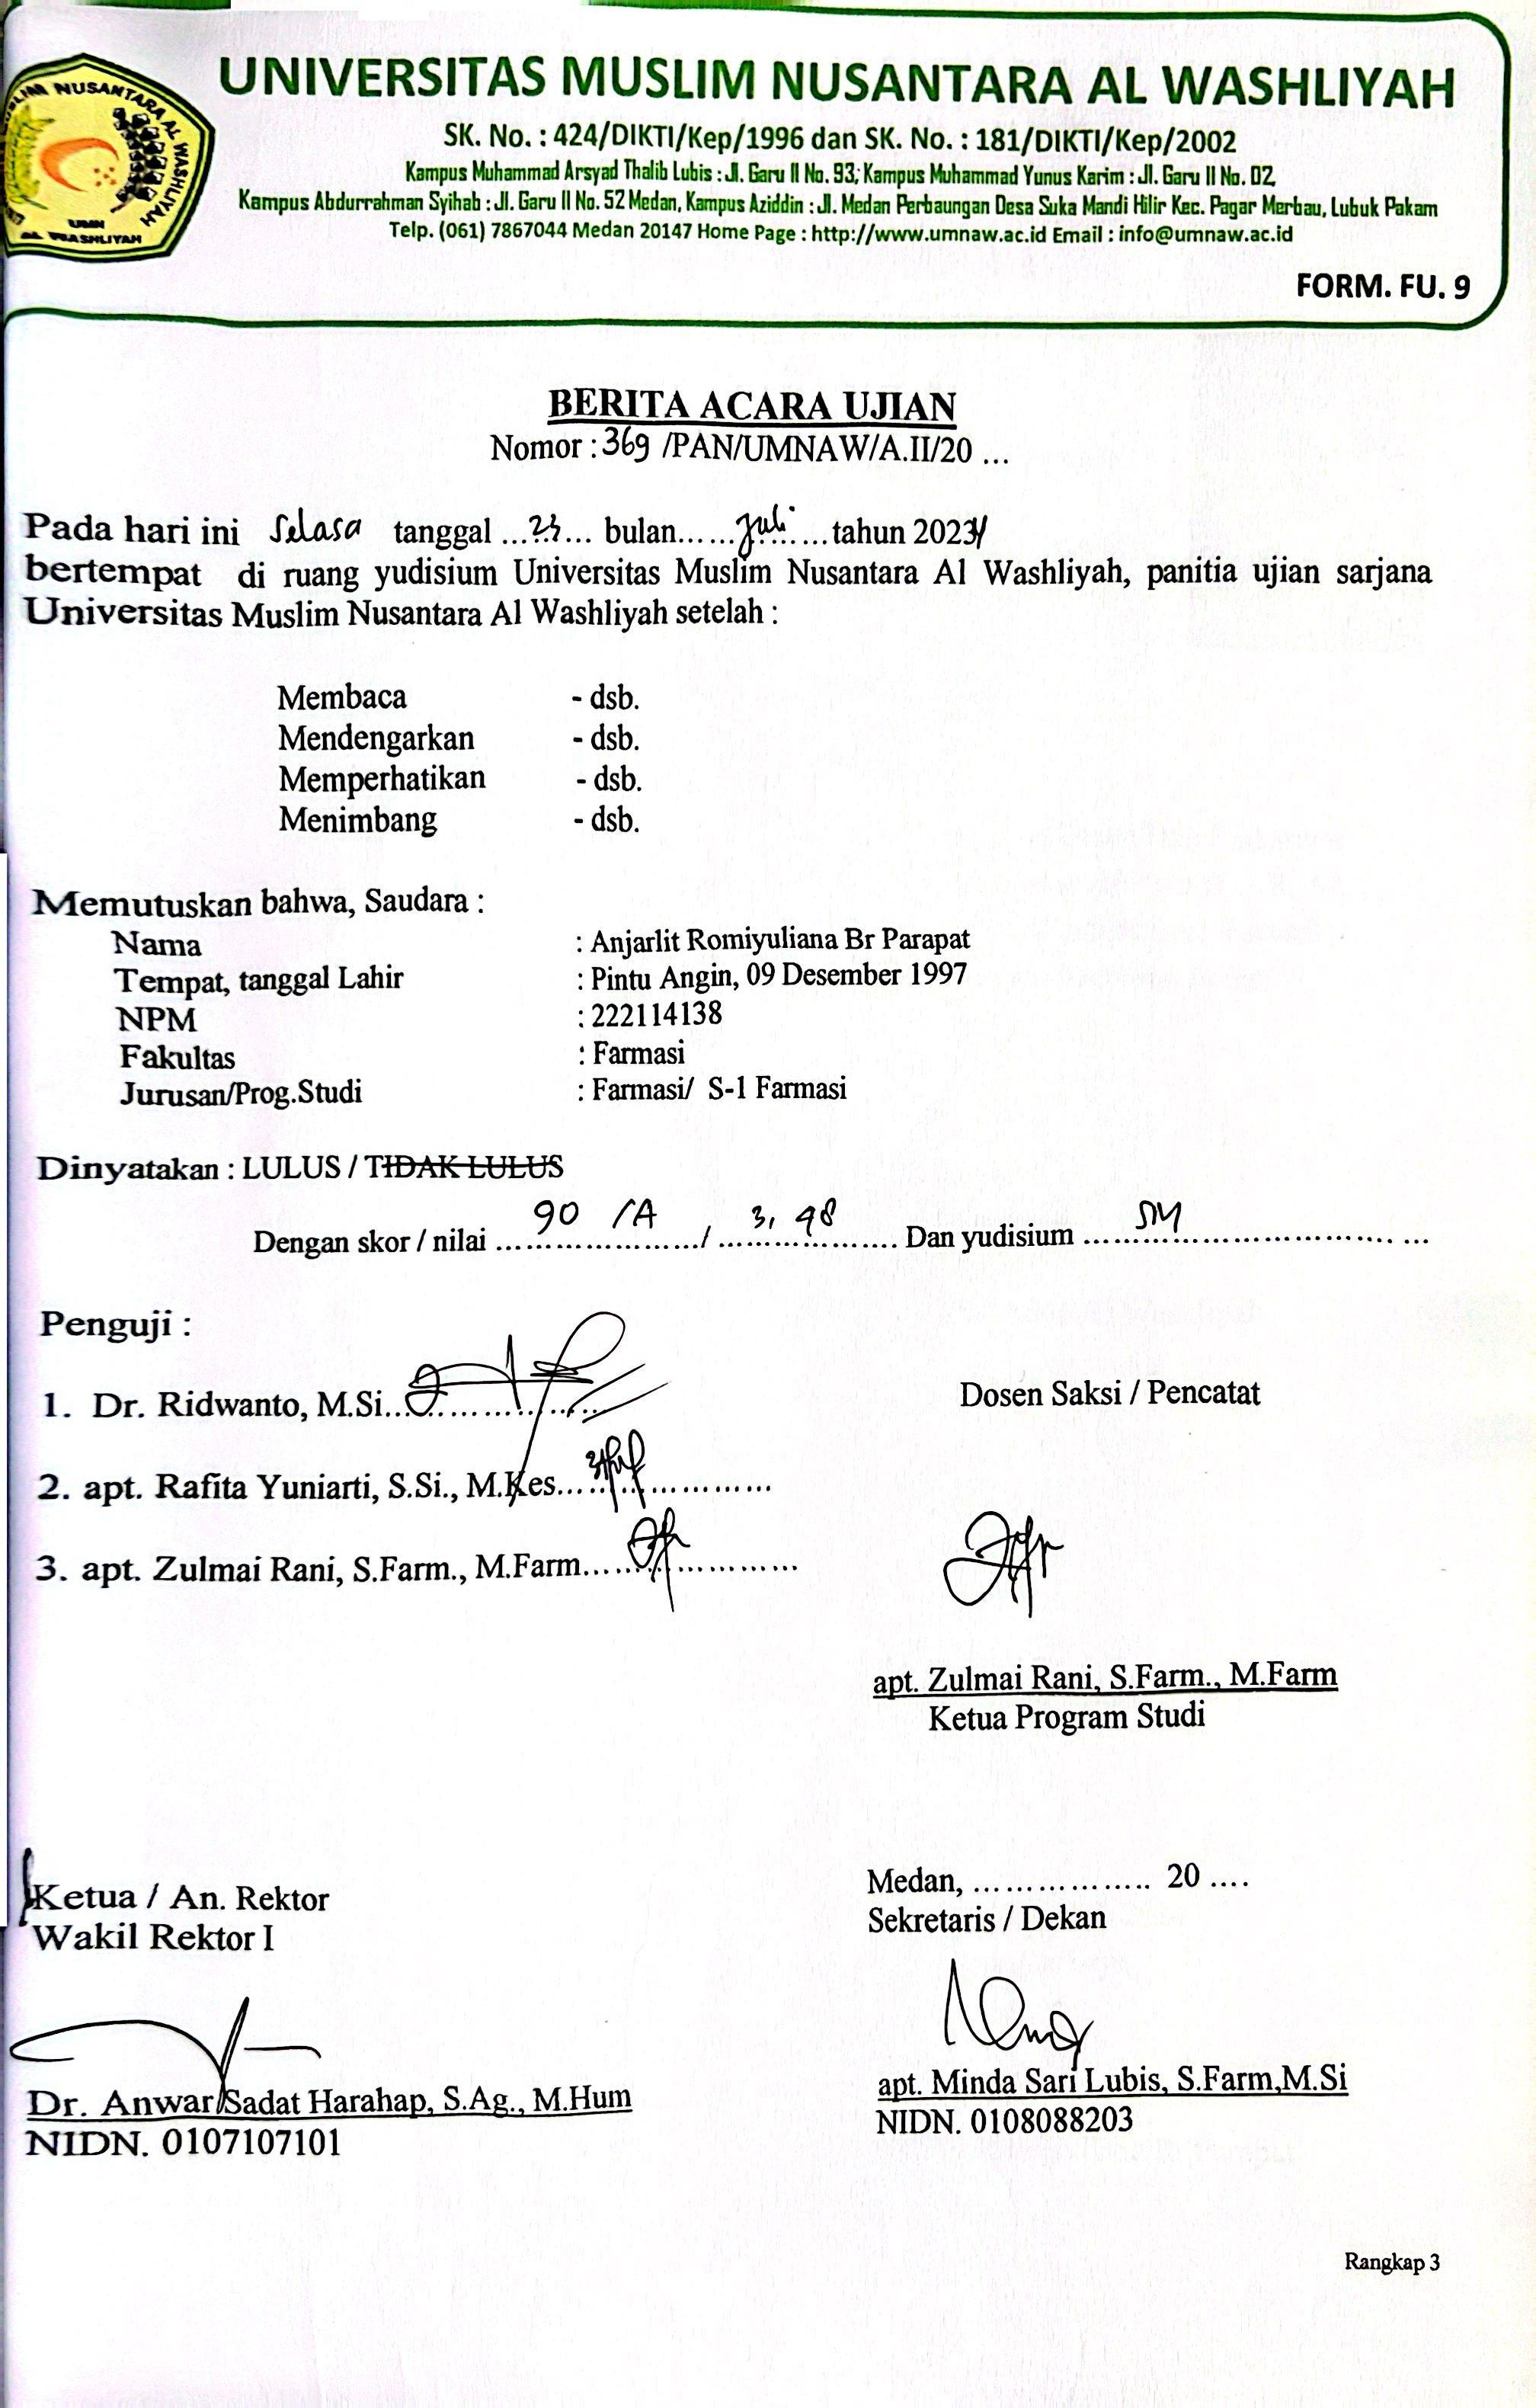 UNIVERSITAS MUSLIM NUSANTARA AL WASHLIYAH
SK. No. : 424/DIKTI/Kep/1996 dan SK. No. : 181/DIKTI/Kep/2002
Kampus Muhammad Arsyad Thalib Lubis : Jl. Garu II No. 93; Kampus Muhammad Yunus Karim : Jl. Garu II No. 02,
Kampus Abdurrahman Syihab : Jl. Garu II No. 52 Medan, Kampus Aziddin : Jl. Medan Perbaungan Desa Suka Mandi Hilir Kec. Pagar Merbau, Lubuk Pakam
Telp. (061) 7867044 Medan 20147 Home Page : http://www.umnaw.ac.id Email : info@umnaw.ac.id
UMN
AL WASHLIYAH
FORM. FU. 9
BERITA ACARA UJIAN
Nomor : 369 /PAN/UMNAW/A.II/20 ...
Pada hari ini Selasa tanggal ...23... bulan......Juli......tahun 2024
bertempat di ruang yudisium Universitas Muslim Nusantara Al Washliyah, panitia ujian sarjana
Universitas Muslim Nusantara Al Washliyah setelah :
Membaca - dsb.
Mendengarkan - dsb.
Memperhatikan - dsb.
Menimbang - dsb.
Memutuskan bahwa, Saudara :
Nama : Anjarlit Romiyuliana Br Parapat
Tempat, tanggal Lahir : Pintu Angin, 09 Desember 1997
NPM : 222114138
Fakultas : Farmasi
Jurusan/Prog.Studi : Farmasi/ S-1 Farmasi
Dinyatakan : LULUS / TIDAK LULUS
Dengan skor / nilai ...90 /A.../...3,98... Dan yudisium ...SM...
Penguji :
1. Dr. Ridwanto, M.Si...............
Dosen Saksi / Pencatat
2. apt. Rafita Yuniarti, S.Si., M.Kes....................
3. apt. Zulmai Rani, S.Farm., M.Farm....................
apt. Zulmai Rani, S.Farm., M.Farm
Ketua Program Studi
Medan, .................. 20 ....
Ketua / An. Rektor
Sekretaris / Dekan
Wakil Rektor I
apt. Minda Sari Lubis, S.Farm,M.Si
Dr. Anwar Sadat Harahap, S.Ag., M.Hum
NIDN. 0108088203
NIDN. 0107107101
Rangkap 3